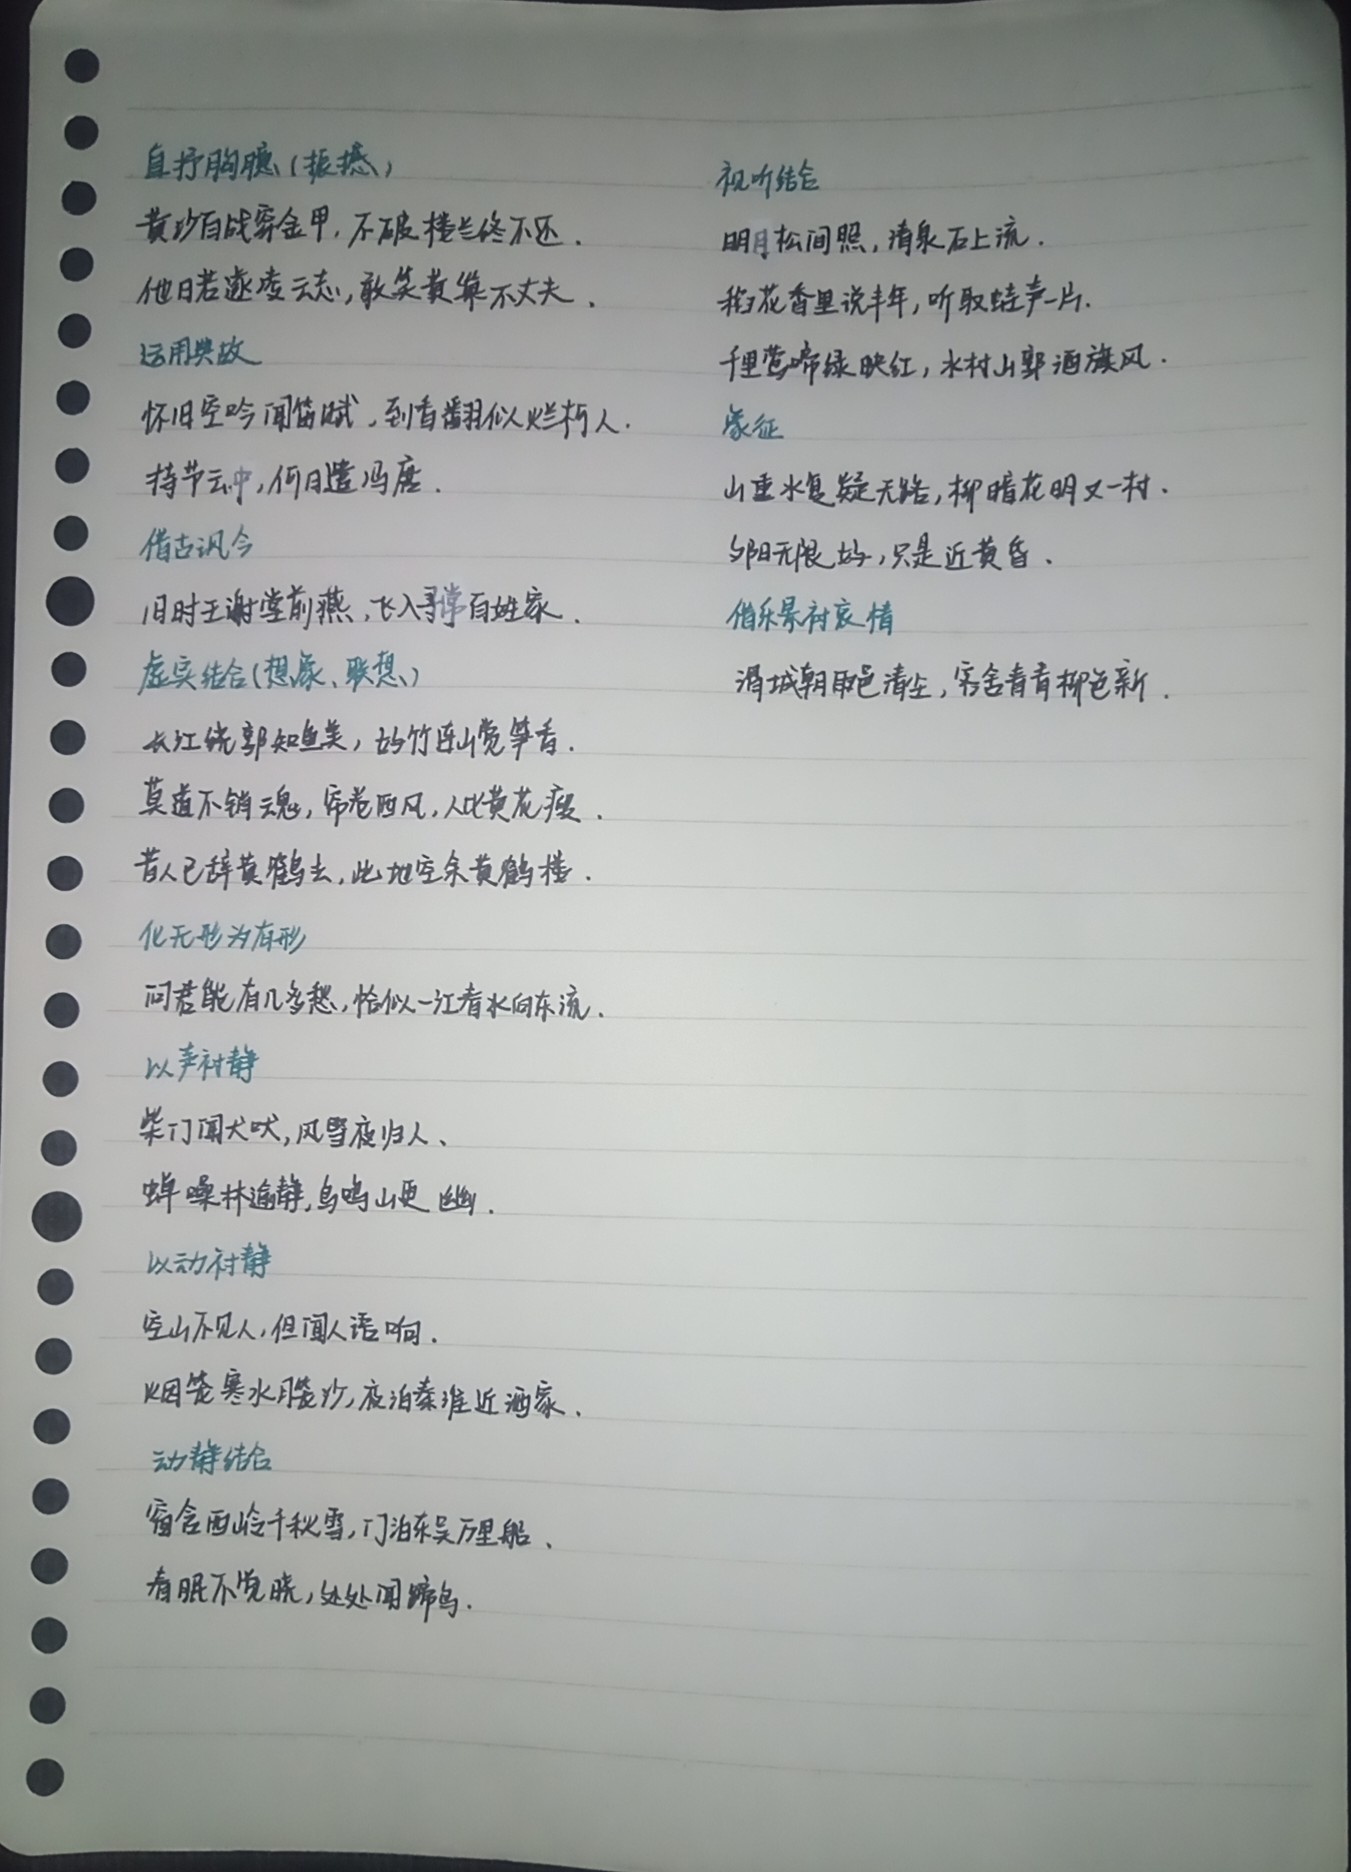 自抒胸臆(振撼)
黄沙百战穿金甲,不破楼兰终不还.
他日若遂凌云志,敢笑黄巢不丈夫.
运用典故
怀旧空吟闻笛赋,到香翻似烂柯人.
持节云中,何日遣冯唐.
借古讽今
旧时王谢堂前燕,飞入寻常百姓家.
虚实结合(想象、联想)
长江绕郭知鱼美,好竹连山觉笋香.
莫道不销魂,帘卷西风,人比黄花瘦.
昔人已辞黄鹤去,此地空余黄鹤楼.
化无形为有形
问君能有几多愁,恰似一江春水向东流.
以声衬静
柴门闻犬吠,风雪夜归人、
蝉噪林逾静,鸟鸣山更幽.
以动衬静
空山不见人,但闻人语响.
烟笼寒水月笼沙,夜泊秦淮近酒家.
动静结合
窗含西岭千秋雪,门泊东吴万里船、
春眠不觉晓,处处闻啼鸟.
视听结合
明月松间照,清泉石上流.
稻花香里说丰年,听取蛙声一片.
千里莺啼绿映红,水村山郭酒旗风.
象征
山重水复疑无路,柳暗花明又一村.
夕阳无限好,只是近黄昏.
借乐景衬哀情
渭城朝雨邑清尘,客舍青青柳色新.